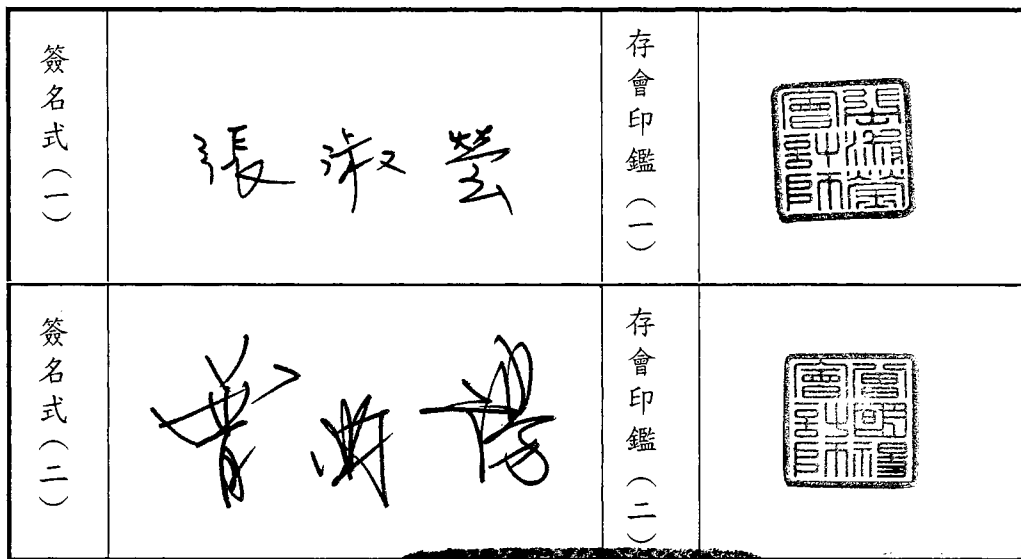 簽名式（一）
張淑瑩
存會印鑑（一）
張淑瑩
會計師
簽名式（二）
存會印鑑（二）
會計師